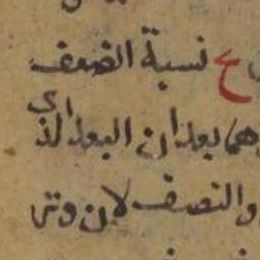 ح نسبة الضعف
وهي بعد ان البعد الذي
والنصف لان وتر